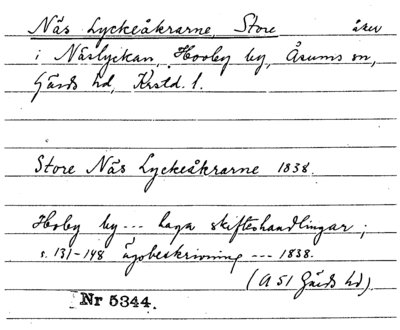 Näs Lyckeåkrarne, Store åker
i Näslyckan, Hovby by, Åsums sn,
Gärds hd, Krstd. l.
Store Näs Lyckeåkrarne 1838.
Hoby by --- laga skifteshandlingar;
s. 131-148 ägobeskrivning --- 1838.
(A 51 Gärds hd)
Nr 5344.